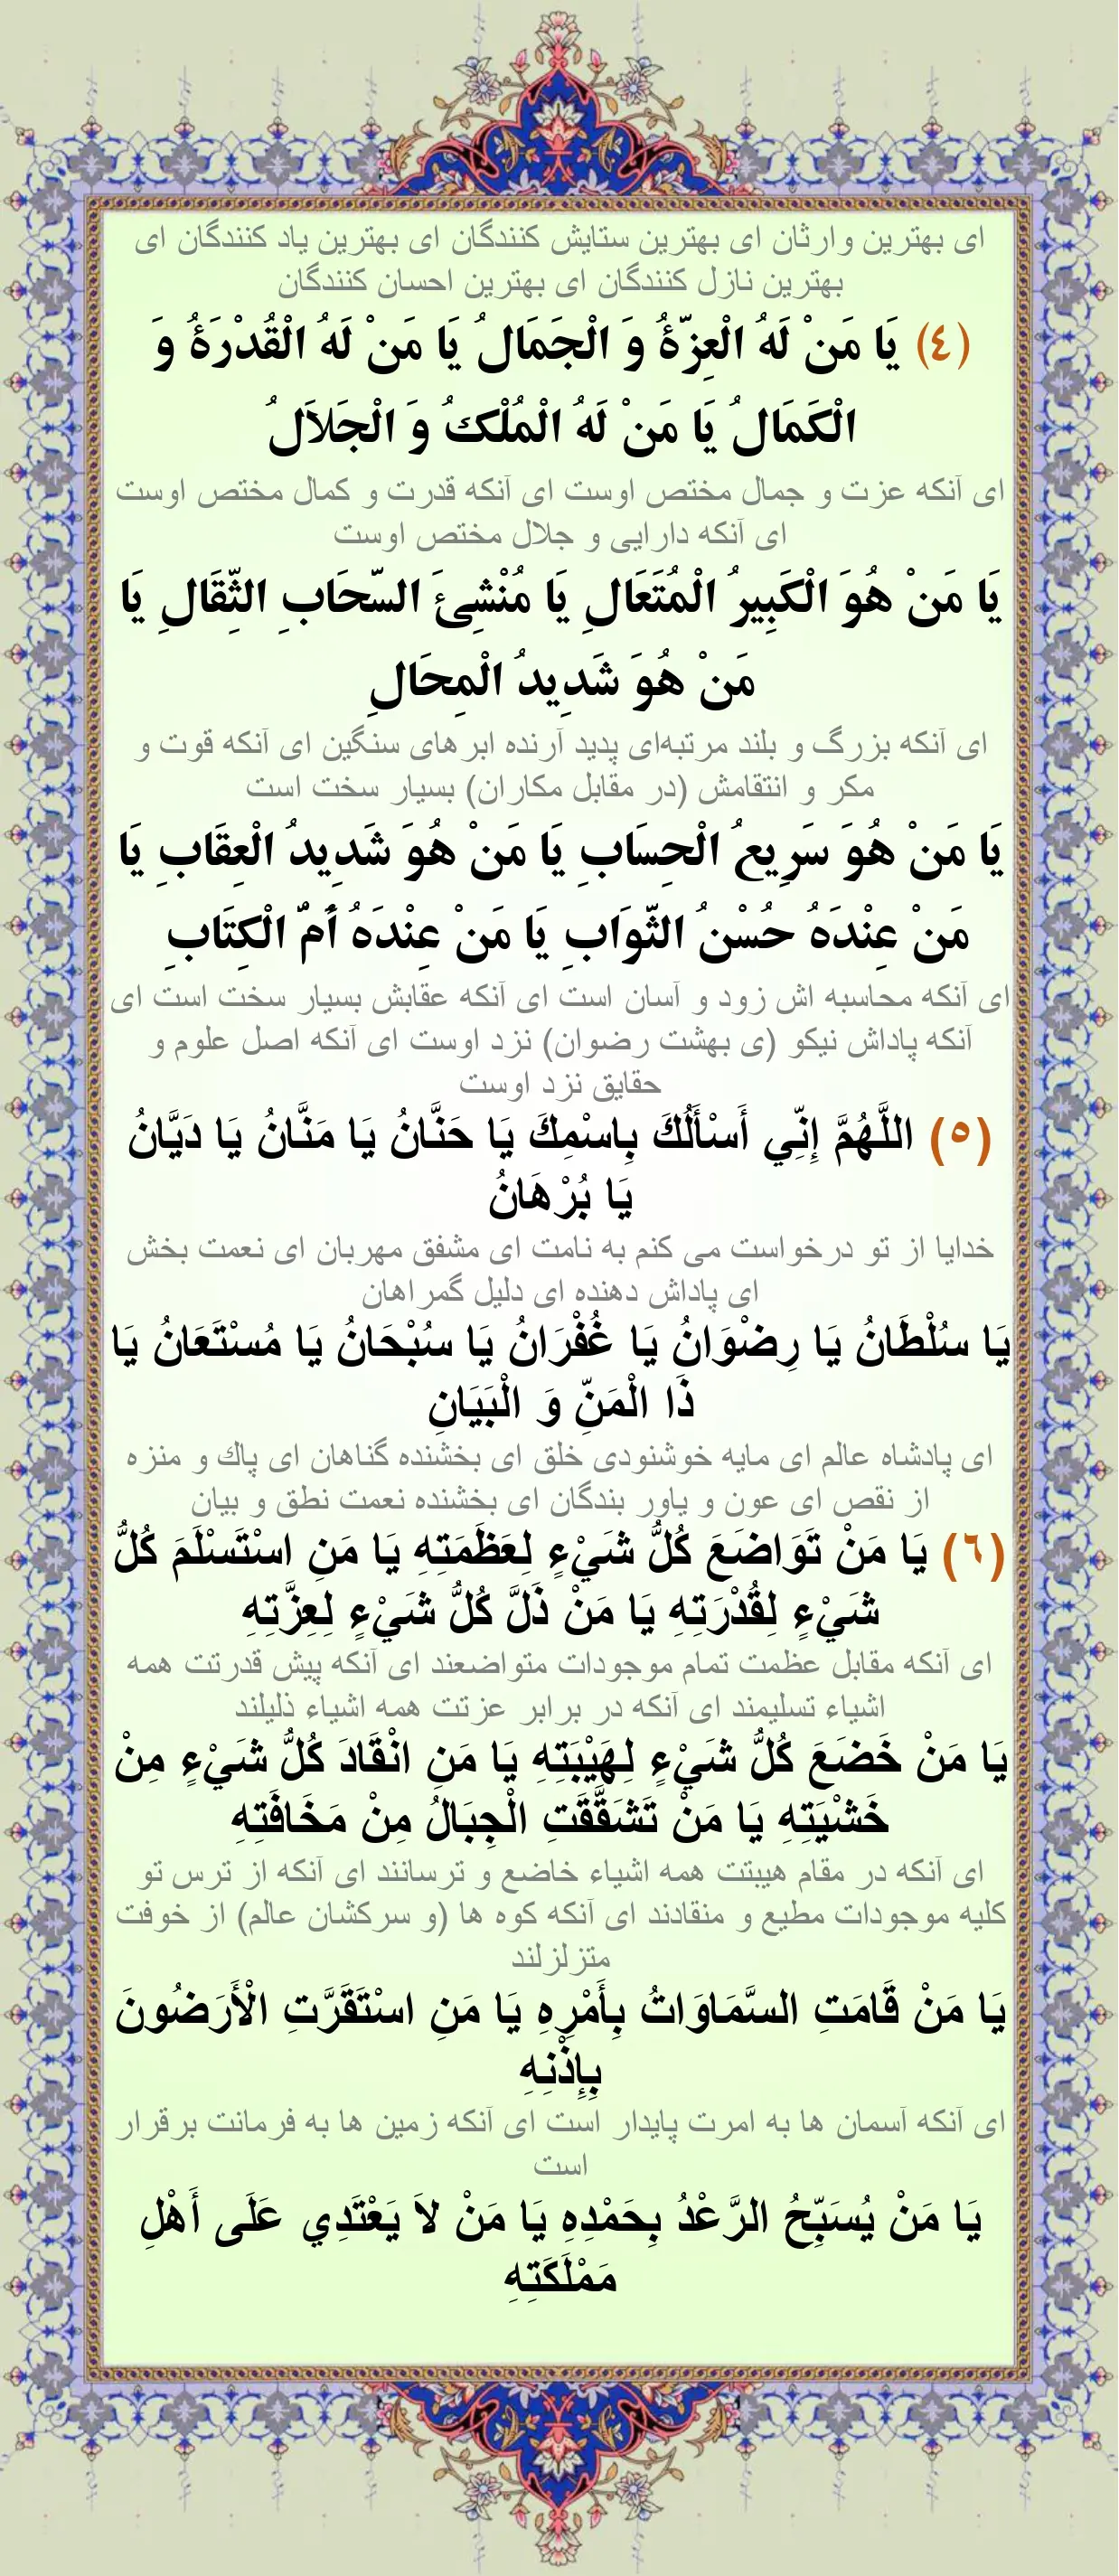 ای بهترین وارثان ای بهترین ستایش کنندگان ای بهترین یاد کنندگان ای
بهترین نازل کنندگان ای بهترین احسان کنندگان
(٤) يَا مَنْ لَهُ الْعِزّةُ وَ الْجَمَالُ يَا مَنْ لَهُ الْقُدْرَةُ وَ
الْكَمَالُ يَا مَنْ لَهُ الْمُلْكُ وَ الْجَلاَلُ
ای آنکه عزت و جمال مختص اوست ای آنکه قدرت و کمال مختص اوست
ای آنکه دارایی و جلال مختص اوست
يَا مَنْ هُوَ الْكَبِيرُ الْمُتَعَالِ يَا مُنْشِئَ السّحَابِ الثّقَالِ يَا
مَنْ هُوَ شَدِيدُ الْمِحَالِ
ای آنکه بزرگ و بلند مرتبه‌ای پدید آرنده ابرهای سنگین ای آنکه قوت و
مکر و انتقامش (در مقابل مکاران) بسیار سخت است
يَا مَنْ هُوَ سَرِيعُ الْحِسَابِ يَا مَنْ هُوَ شَدِيدُ الْعِقَابِ يَا
مَنْ عِنْدَهُ حُسْنُ الثّوَابِ يَا مَنْ عِنْدَهُ أُمّ الْكِتَابِ
ای آنکه محاسبه اش زود و آسان است ای آنکه عقابش بسیار سخت است ای
آنکه پاداش نیکو (ی بهشت رضوان) نزد اوست ای آنکه اصل علوم و
حقایق نزد اوست
(٥) اللَّهُمَّ إِنِّي أَسْأَلُكَ بِاسْمِكَ يَا حَنَّانُ يَا مَنَّانُ يَا دَيَّانُ
يَا بُرْهَانُ
خدایا از تو درخواست می کنم به نامت ای مشفق مهربان ای نعمت بخش
ای پاداش دهنده ای دلیل گمراهان
يَا سُلْطَانُ يَا رِضْوَانُ يَا غُفْرَانُ يَا سُبْحَانُ يَا مُسْتَعَانُ يَا
ذَا الْمَنِّ وَ الْبَيَانِ
ای پادشاه عالم ای مایه خوشنودی خلق ای بخشنده گناهان ای پاك و منزه
از نقص ای عون و یاور بندگان ای بخشنده نعمت نطق و بیان
(٦) يَا مَنْ تَوَاضَعَ كُلُّ شَيْءٍ لِعَظَمَتِهِ يَا مَنِ اسْتَسْلَمَ كُلُّ
شَيْءٍ لِقُدْرَتِهِ يَا مَنْ ذَلَّ كُلُّ شَيْءٍ لِعِزَّتِهِ
ای آنکه مقابل عظمت تمام موجودات متواضعند ای آنکه پیش قدرتت همه
اشیاء تسلیمند ای آنکه در برابر عزتت همه اشیاء ذلیلند
يَا مَنْ خَضَعَ كُلُّ شَيْءٍ لِهَيْبَتِهِ يَا مَنِ انْقَادَ كُلُّ شَيْءٍ مِنْ
خَشْيَتِهِ يَا مَنْ تَشَقَّقَتِ الْجِبَالُ مِنْ مَخَافَتِهِ
ای آنکه در مقام هیبتت همه اشیاء خاضع و ترسانند ای آنکه از ترس تو
کلیه موجودات مطیع و منقادند ای آنکه کوه ها (و سرکشان عالم) از خوفت
متزلزلند
يَا مَنْ قَامَتِ السَّمَاوَاتُ بِأَمْرِهِ يَا مَنِ اسْتَقَرَّتِ الْأَرَضُونَ
بِإِذْنِهِ
ای آنکه آسمان ها به امرت پایدار است ای آنکه زمین ها به فرمانت برقرار
است
يَا مَنْ يُسَبِّحُ الرَّعْدُ بِحَمْدِهِ يَا مَنْ لاَ يَعْتَدِي عَلَى أَهْلِ
مَمْلَكَتِهِ